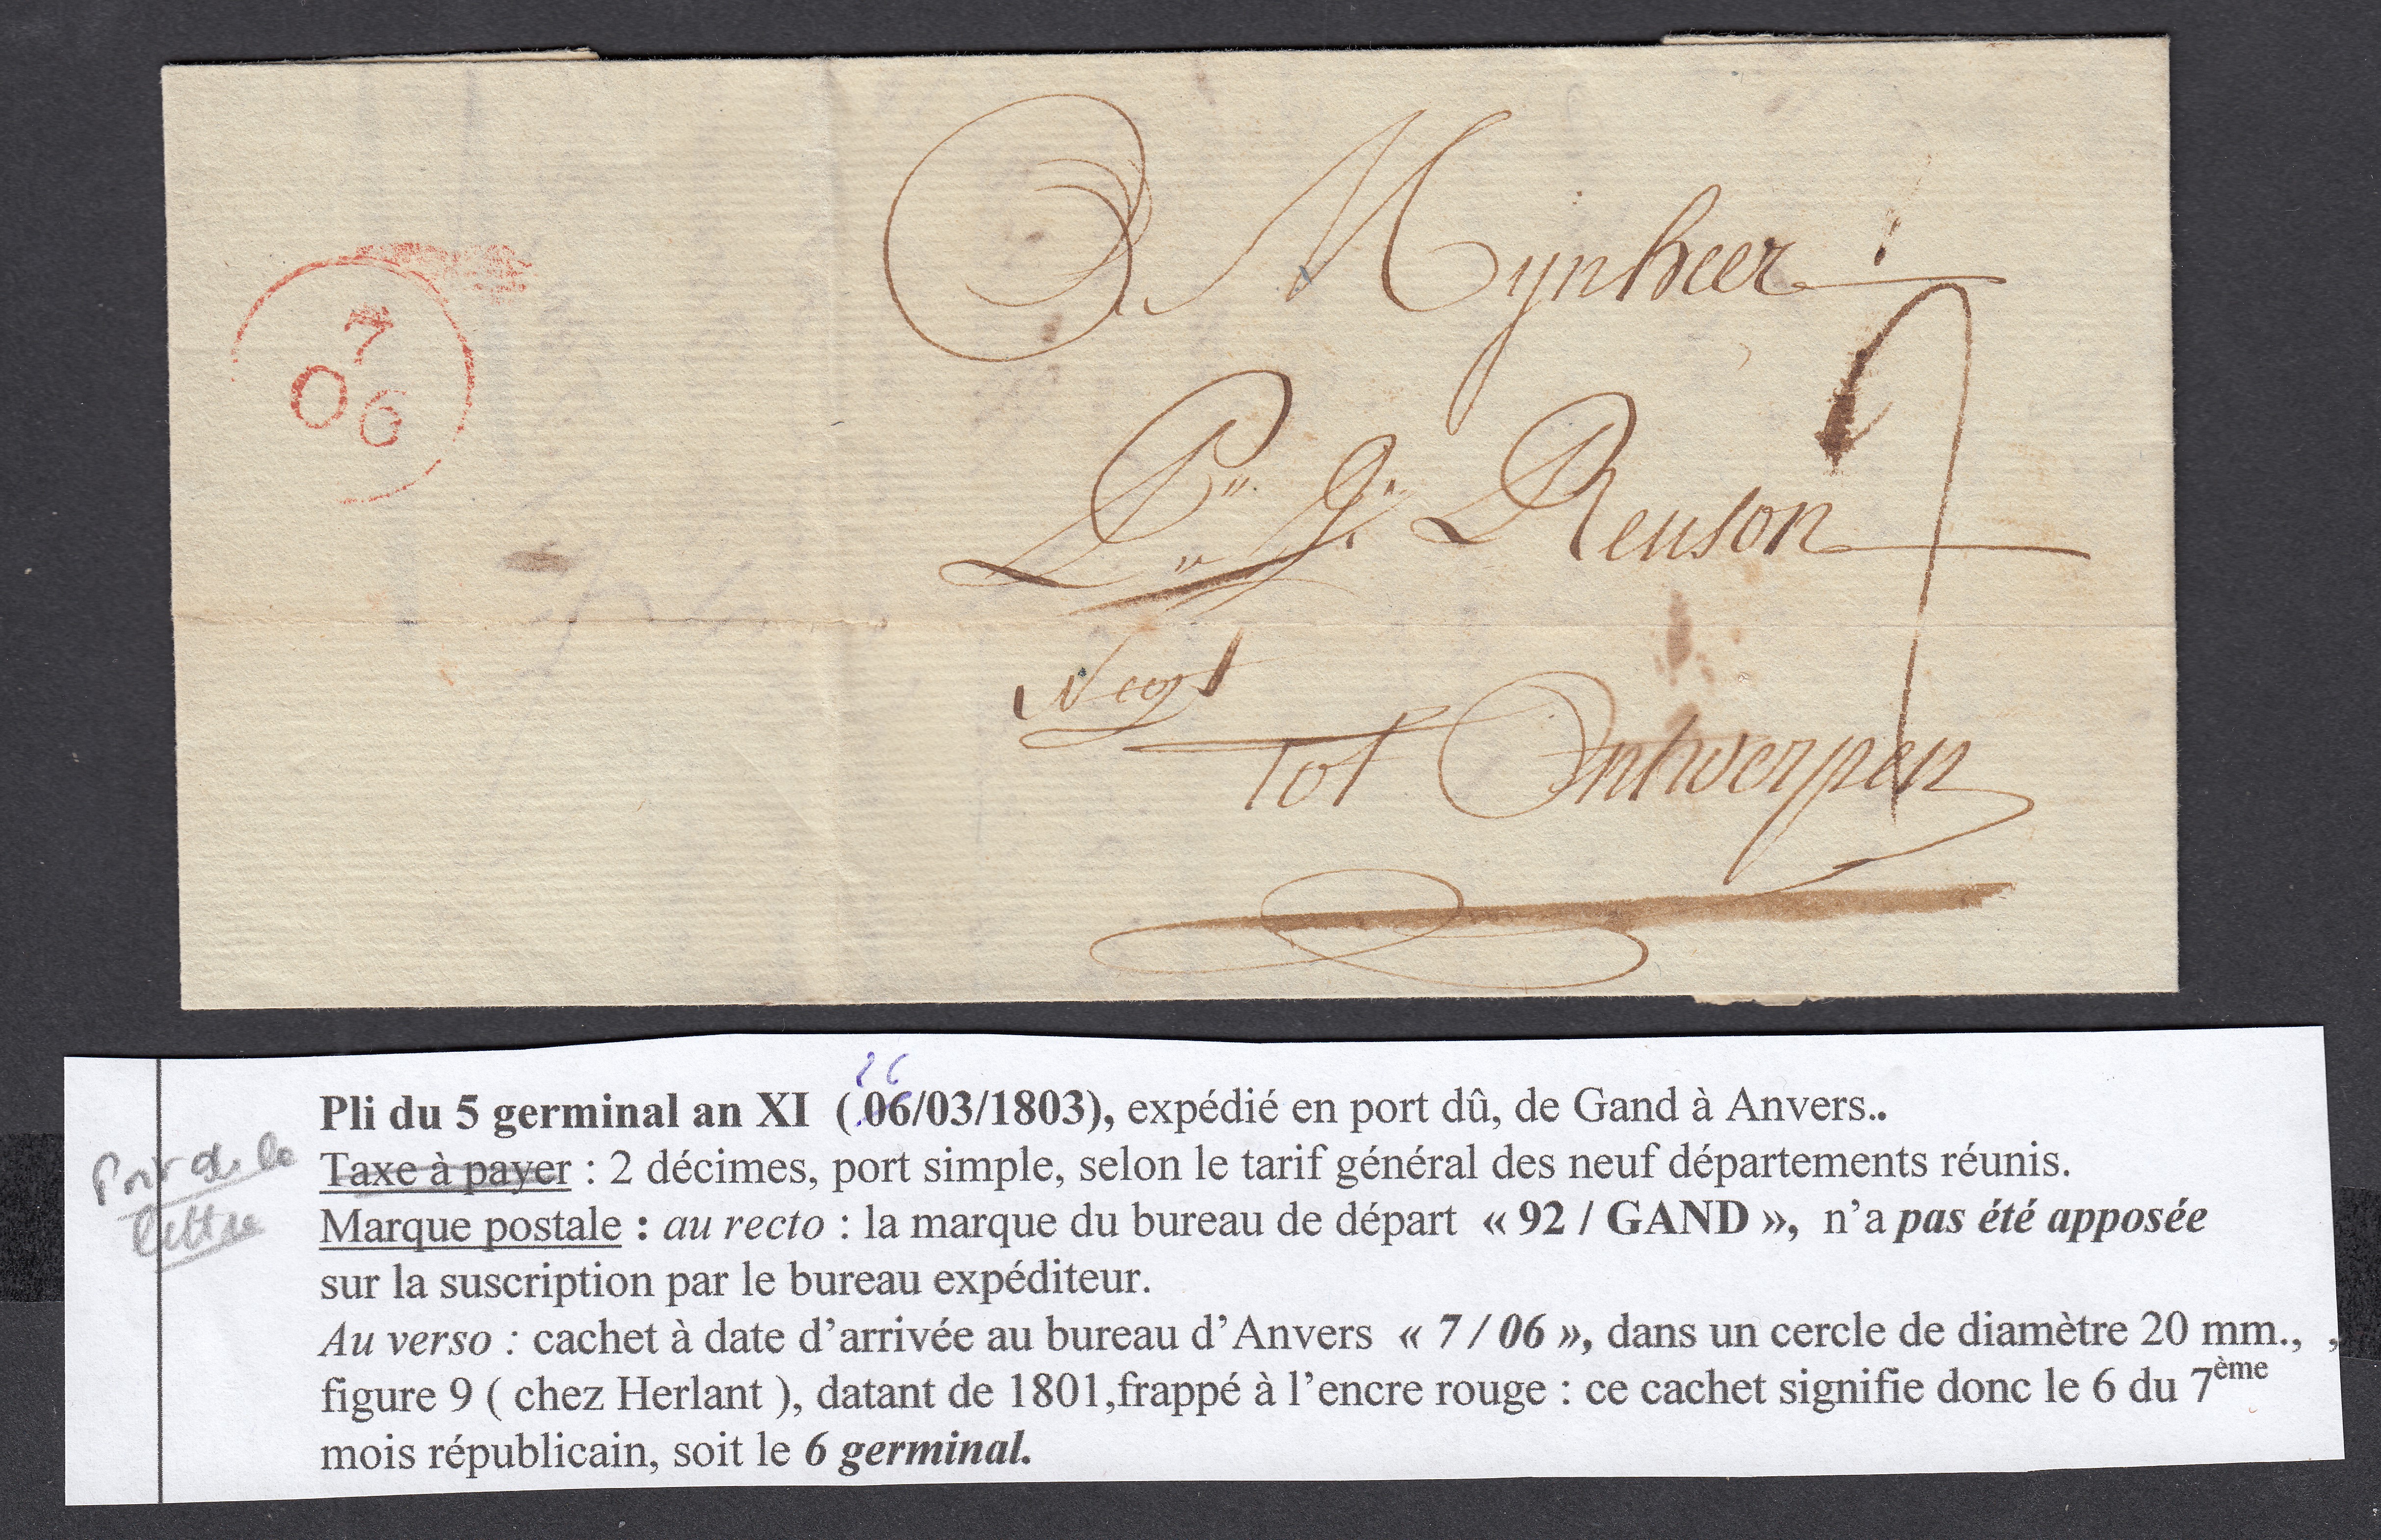 7
06
Mynheer
P: J: Reuson
Negt
tot Antwerpen
26
Pli du 5 germinal an XI (06/03/1803), expédié en port dû, de Gand à Anvers..
Port de la
lettre
Taxe à payer : 2 décimes, port simple, selon le tarif général des neuf départements réunis.
Marque postale : au recto : la marque du bureau de départ « 92 / GAND », n’a pas été apposée
sur la suscription par le bureau expéditeur.
Au verso : cachet à date d’arrivée au bureau d’Anvers « 7 / 06 », dans un cercle de diamètre 20 mm., ,
figure 9 ( chez Herlant ), datant de 1801,frappé à l’encre rouge : ce cachet signifie donc le 6 du 7ème
mois républicain, soit le 6 germinal.